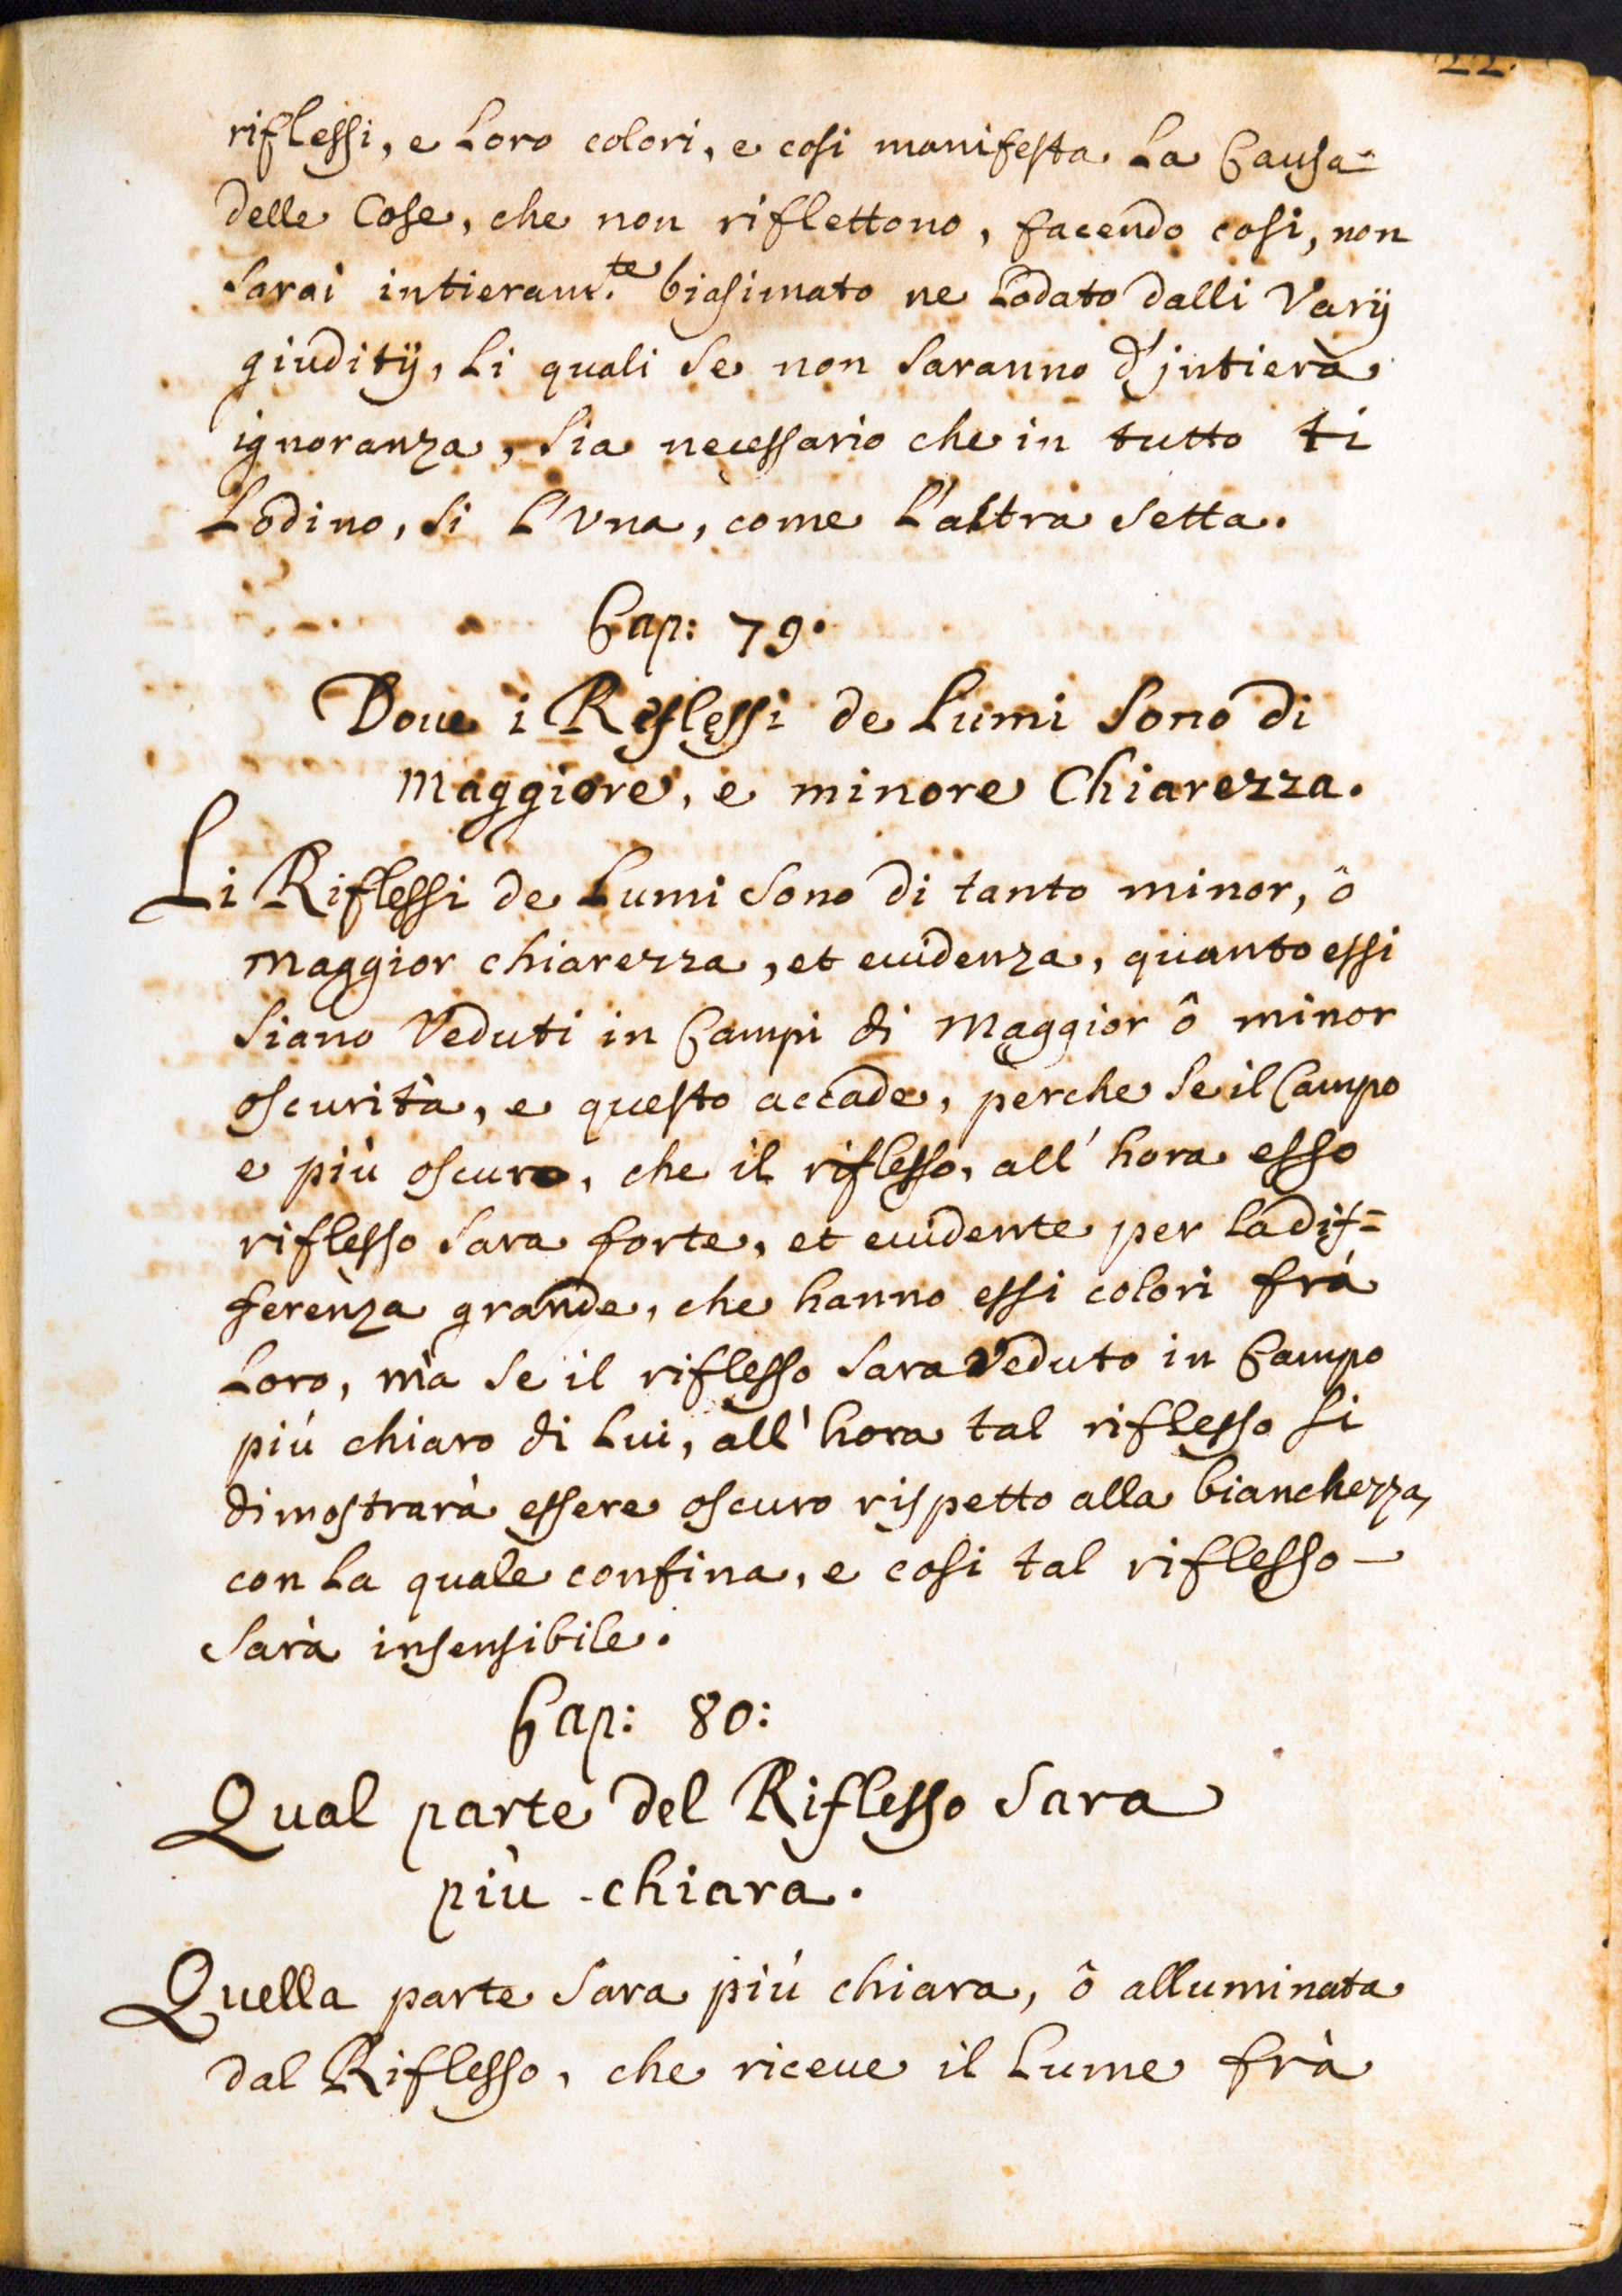 22.
riflessi, e Loro colori, e cosi manifesta La Causa
delle Cose, che non riflettono, facendo cosi, non
sarai intieram.te biasimato ne Lodato dalli Varij
giuditij, Li quali se non saranno d'intiera
ignoranza, sia necessario che in tutto ti
Lodino, si L'Vna, come L'altra setta.
Cap: 79.
Doue i Riflessi de Lumi sono di
Maggiore, e minore Chiarezza.
Li Riflessi de Lumi sono di tanto minor, ô
Maggior chiarezza, et euidenza, quanto essi
siano Veduti in Campi di Maggior ô minor
oscurità, e questo accade, perche se il Campo
e più oscuro, che il riflesso, all'hora esso
riflesso sara forte, et euidente per la dif=
ferenza grande, che hanno essi colori frà
Loro, mà se il riflesso sara Veduto in Campo
più chiaro di Lui, all'hora tal riflesso si
dimostrarà essere oscuro rispetto alla bianchezza,
con La quale confina, e cosi tal riflesso
sarà insensibile.
Cap: 80:
Qual parte del Riflesso sara
più chiara.
Quella parte sara più chiara, ô alluminata
dal Riflesso, che riceue il Lume frà